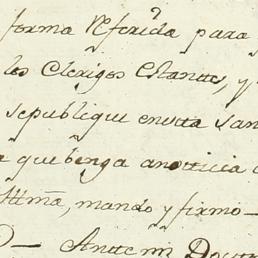 forma referida para
los Clerigos Estantes, y
sepublique enesta San
que benga anotticia
Illmã, mando y firmo —
— Antte mi Doctt